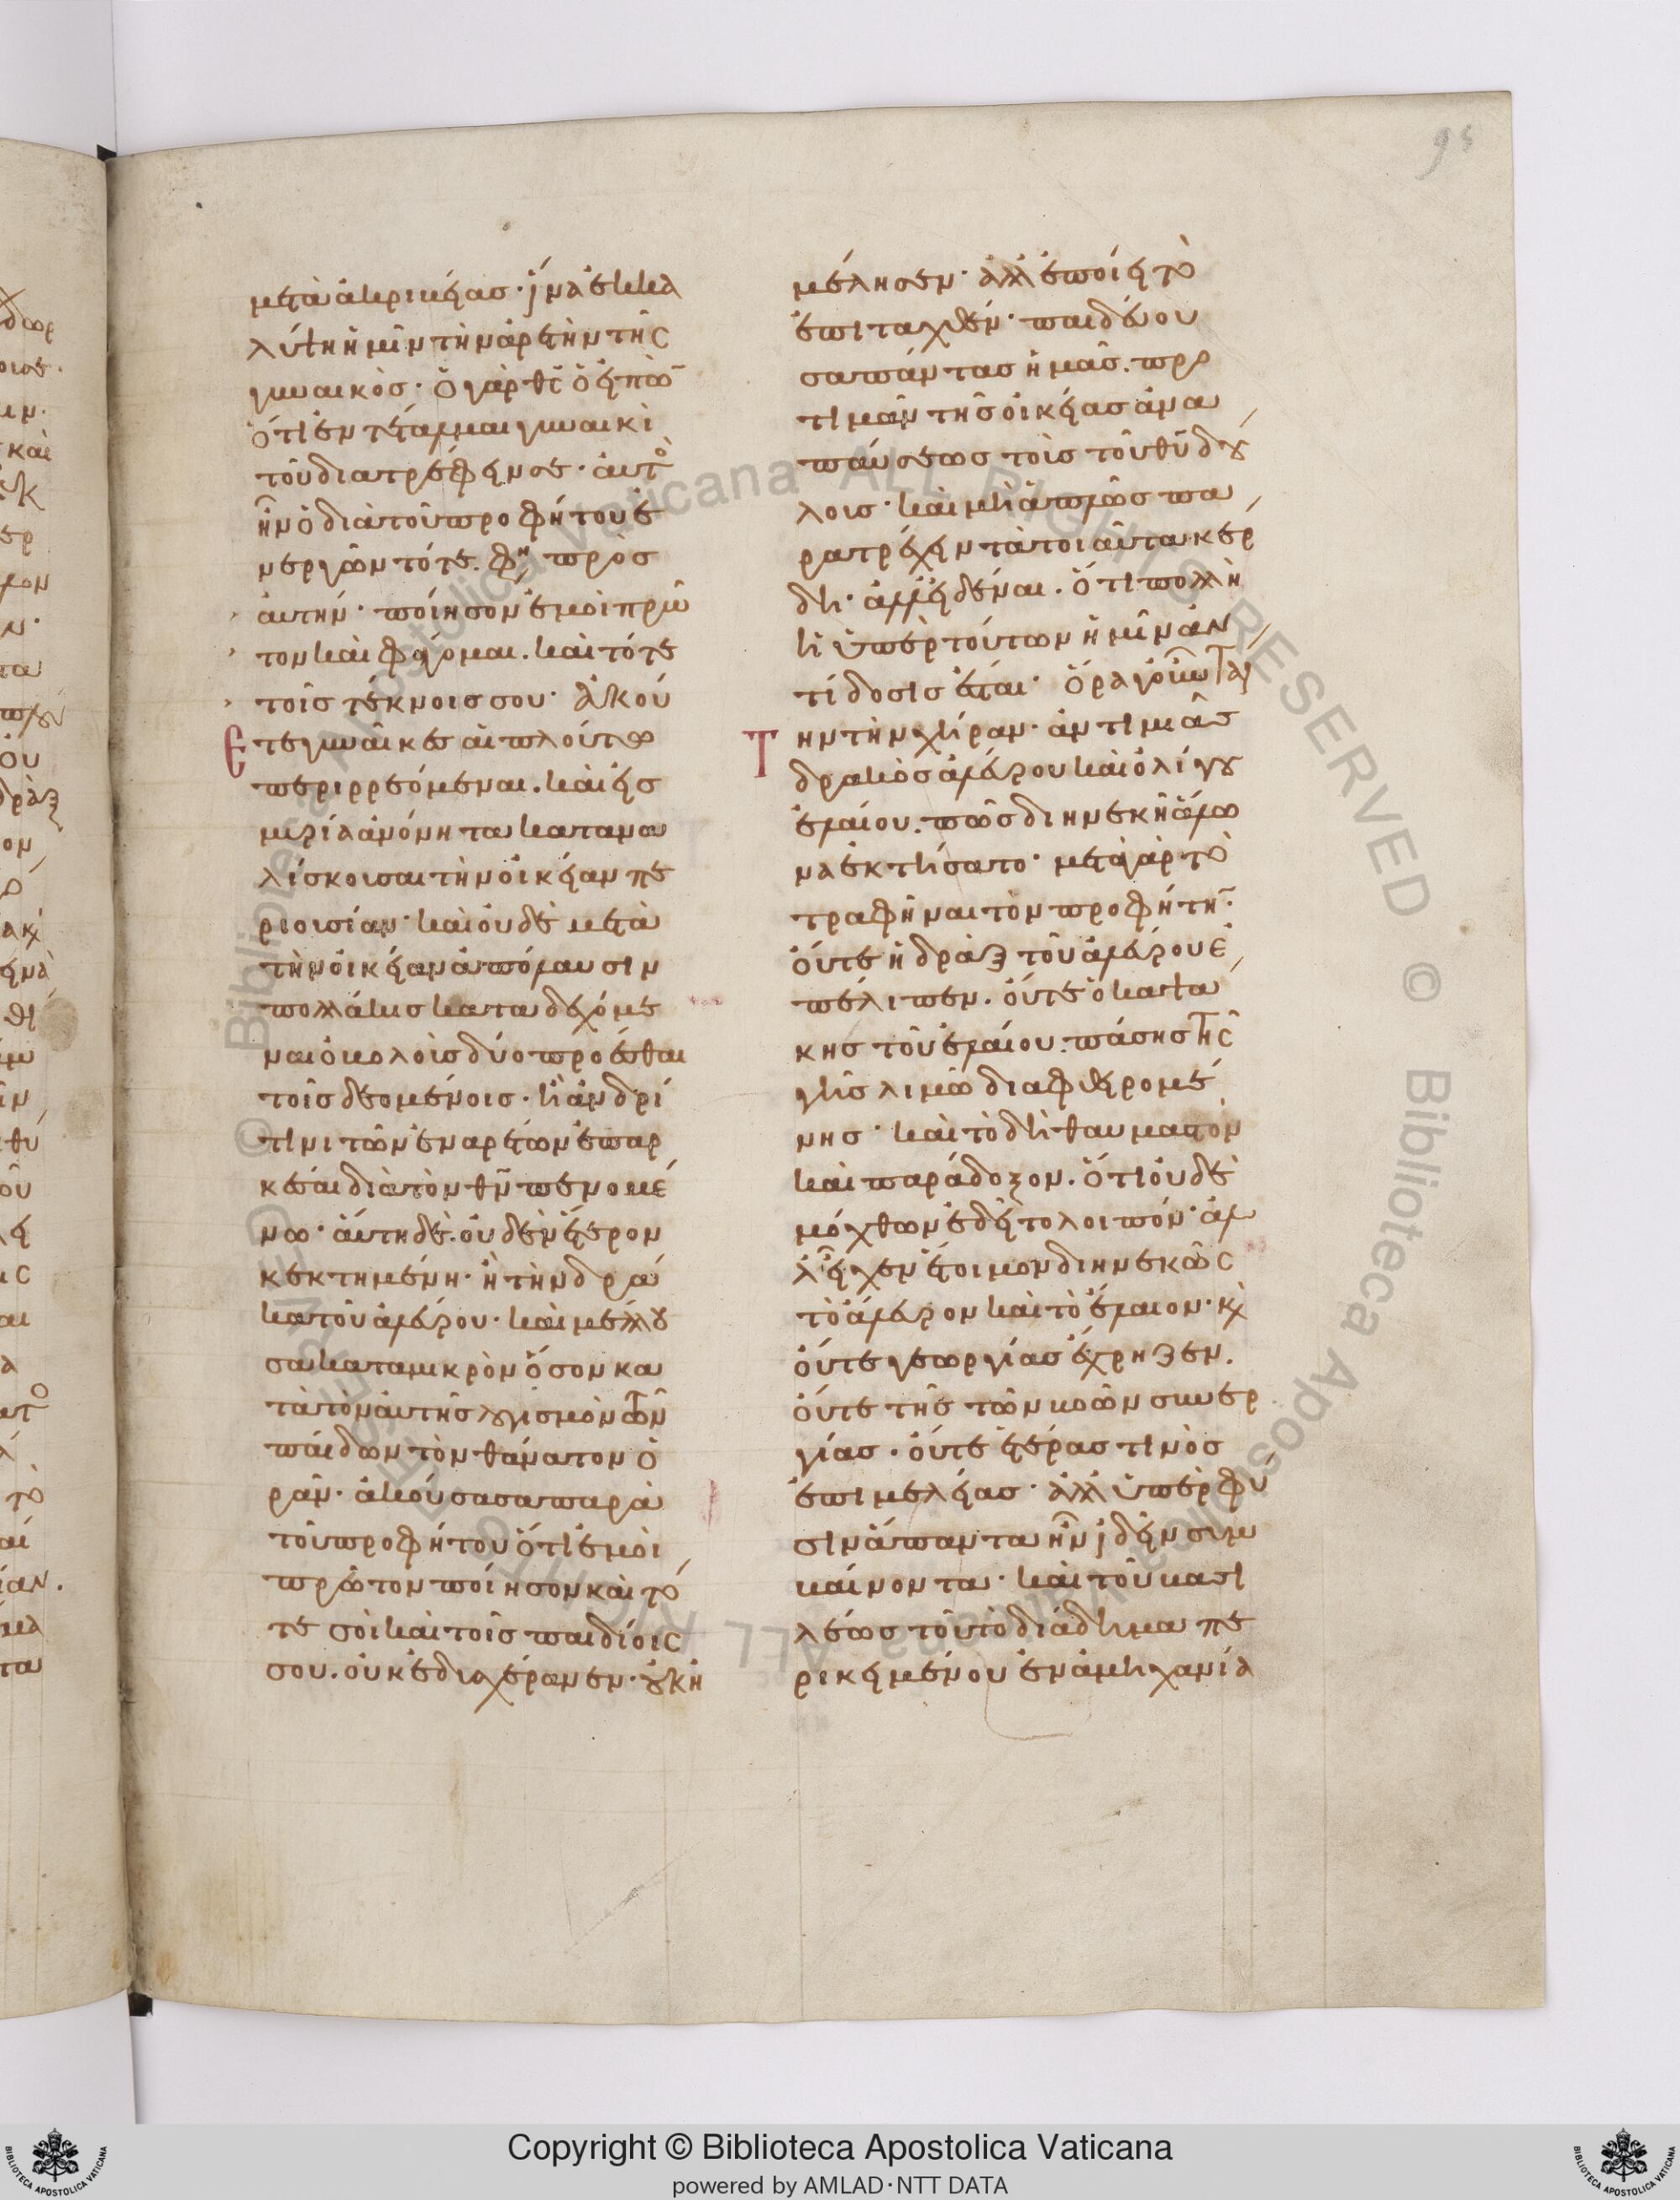 95
μετὰ ἀκρικείας· ἵνα ἐκκα
λύψη ἡμῖν τὴν ἀρετὴν τῆς
γυναικός· ὁ γὰρ θς ὁ εἰπὼ
ὅτι ἐντέταλμαι γυναικὶ
τοῦ διατρέφειν σε· αὐτὸ
ἦν ὁ διὰ τοῦ προφήτου ἐ
νεργῶν τότε. φη πρὸς
αὐτήν· ποίησον ἐμοὶ πρῶ
τον καὶ φάγομαι. καὶ τότε
τοῖς τέκνοις σου· ἀκού
ετε γυναῖκες αἱ πλούτω
περιρρεόμεναι. καὶ εἰς
μυρία ἀνόνητα καταναλ
λίσκουσαι τὴν οἰκείαν πε
ριουσίαν· καὶ οὐδὲ μετὰ
τὴν οἰκείαν ἀπόλαυσιν
πολλάκις καταδεχόμε
ναι ὀκολοὺς δύο προέσθαι
τοῖς δεομένοις. ἢ ἀνδρί
τινι τῶν ἐναρέτων ἐπαρ
κέσαι διὰ τὸν θν πενομέ
νω· αὕτη δὲ. οὐδὲν ἕτερον
κεκτημένη· ἢ τὴν δρά
κα τοῦ ἀλεύρου· καὶ μέλλου
σα κατα μικρὸν ὅσον κα
τὰ τὸν αὐτῆς λογισμὸν τῶν
παίδων τὸν θάνατον ὁ
ρᾶν· ἀκούσασα παρὰ
τοῦ προφήτου ὅτι ἐμοὶ
πρῶτον ποίησον καὶ τό
τε σοὶ καὶ τοῖς παιδίοις
σου. οὐκ ἐδυσχέρανεν· οὐκ ἠ
μέλησεν· ἀλλ ἐποίει τὸ
ἐπιταχθέν· παιδεύου
σα πάντας ἡμᾶς. προ
τιμᾶν τῆς οἰκείας ἀνα
παύσεως τοὺς τοῦ θυ δού
λους· καὶ μὴ ἁπλῶς πα
ρατρέχειν τὰ τοιαῦτα κέρ
δη· ἀλλ εἰδέναι. ὅτι πολλὴ
ἡ ὑπὲρ τούτων ἡμῖν ἀν
τίδοσις ἔσται· ὅρα γοῦν ταύ
την τὴν χήραν· ἀντὶ μιᾶς
δρακὸς ἀλεύρου καὶ ὀλίγου
ἐλαίου. πῶς διηνεκῆ ἅλω
να ἐκτήσατο· μετὰ γὰρ τὸ
τραφῆναι τὸν προφήτην·
οὔτε ἡ δρὰξ τοῦ ἀλεύρου ἐ
πέλιπεν. οὔτε ὁ καψά
κης τοῦ ἐλαίου. πάσης τῆς
γῆς λιμῶ διαφθειρομέ
νης· καὶ τὸ δὴ θαυμαστὸν
καὶ παράδοξον. ὅτι οὐδὲ
μόχθων ἐδεῖτο λοιπόν· ἀλ
λ εἶχεν ἕτοιμον διηνεκῶς
τὸ ἄλευρον καὶ τὸ ἔλαιον· καὶ
οὔτε γεωργίας ἔχρηζεν.
οὔτε τῆς τῶν κοῶν συνερ
γίας· οὔτε ἑτέρας τινὸς
ἐπιμελείας· ἀλλ ὑπὲρ φύ
σιν ἅπαντα ἦν ἰδεῖν συμ
καίνοντα· καὶ τοῦ κασι
λέως τοῦ τὸ διάδημα πε
ρικειμένου ἐν ἀμηχανία
Copyright © Biblioteca Apostolica Vaticana
powered by AMLAD·NTT DATA